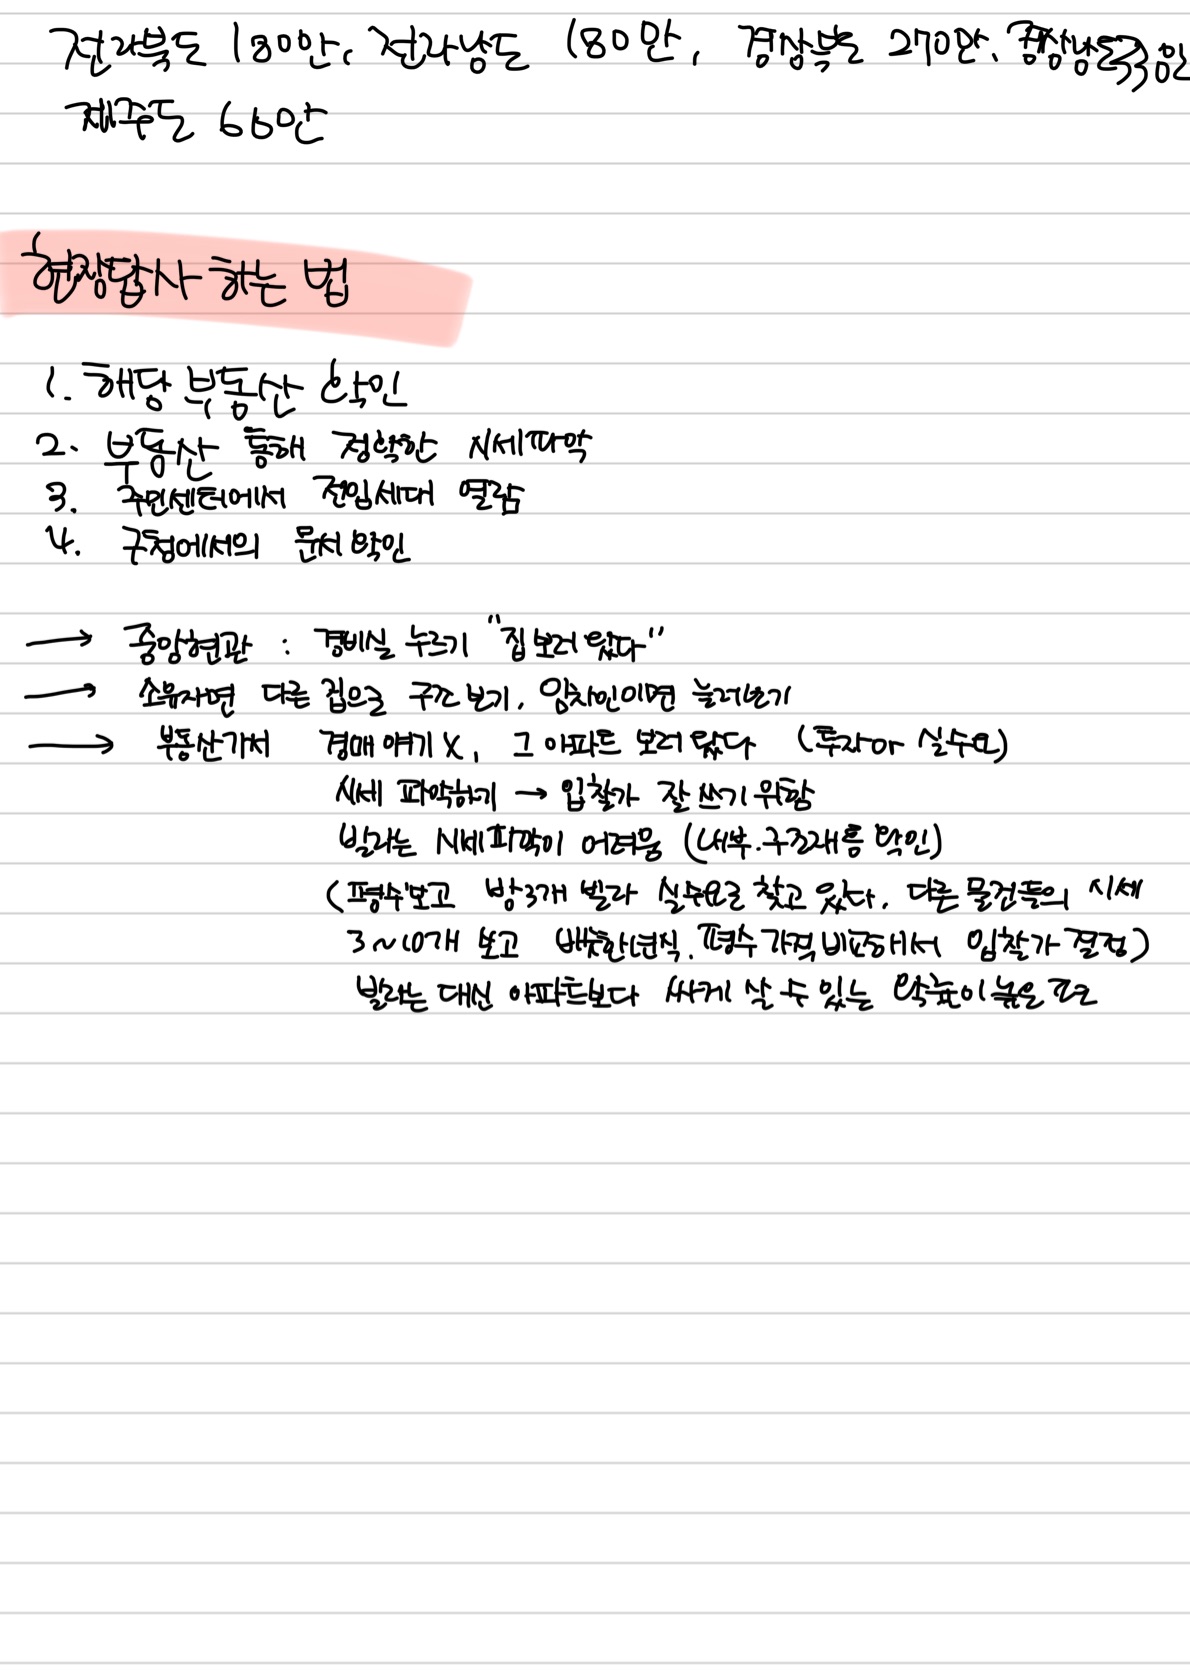 전라북도 180만, 전라남도 180만, 경상북도 270만, 경상남도
제주도 66만
현장답사 하는 법
1. 해당 부동산 확인
2. 부동산 통해 정확한 시세파악
3. 주민센터에서 전입세대 열람
4. 구청에서의 문서 확인
→ 중앙현관 : 경비실 누르기 "집 보러 왔다"
→ 소유자면 다른 집으로 구조 보기, 임차인이면 눌러보기
→ 부동산가서 경매 얘기 X, 그 아파트 보러 왔다 (투자 실수요)
시세 파악하기 → 입찰가 잘 쓰기 위함
빌라는 시세파악이 어려움 (내부.구조 확인)
(평수보고 방3개 빌라 실수요로 찾고 있다. 다른 물건들의 시세
3~10개 보고 비슷한년식.평수 가격 비교해서 입찰가 결정)
빌라는 대신 아파트보다 싸게 살 수 있는 확률이 높은